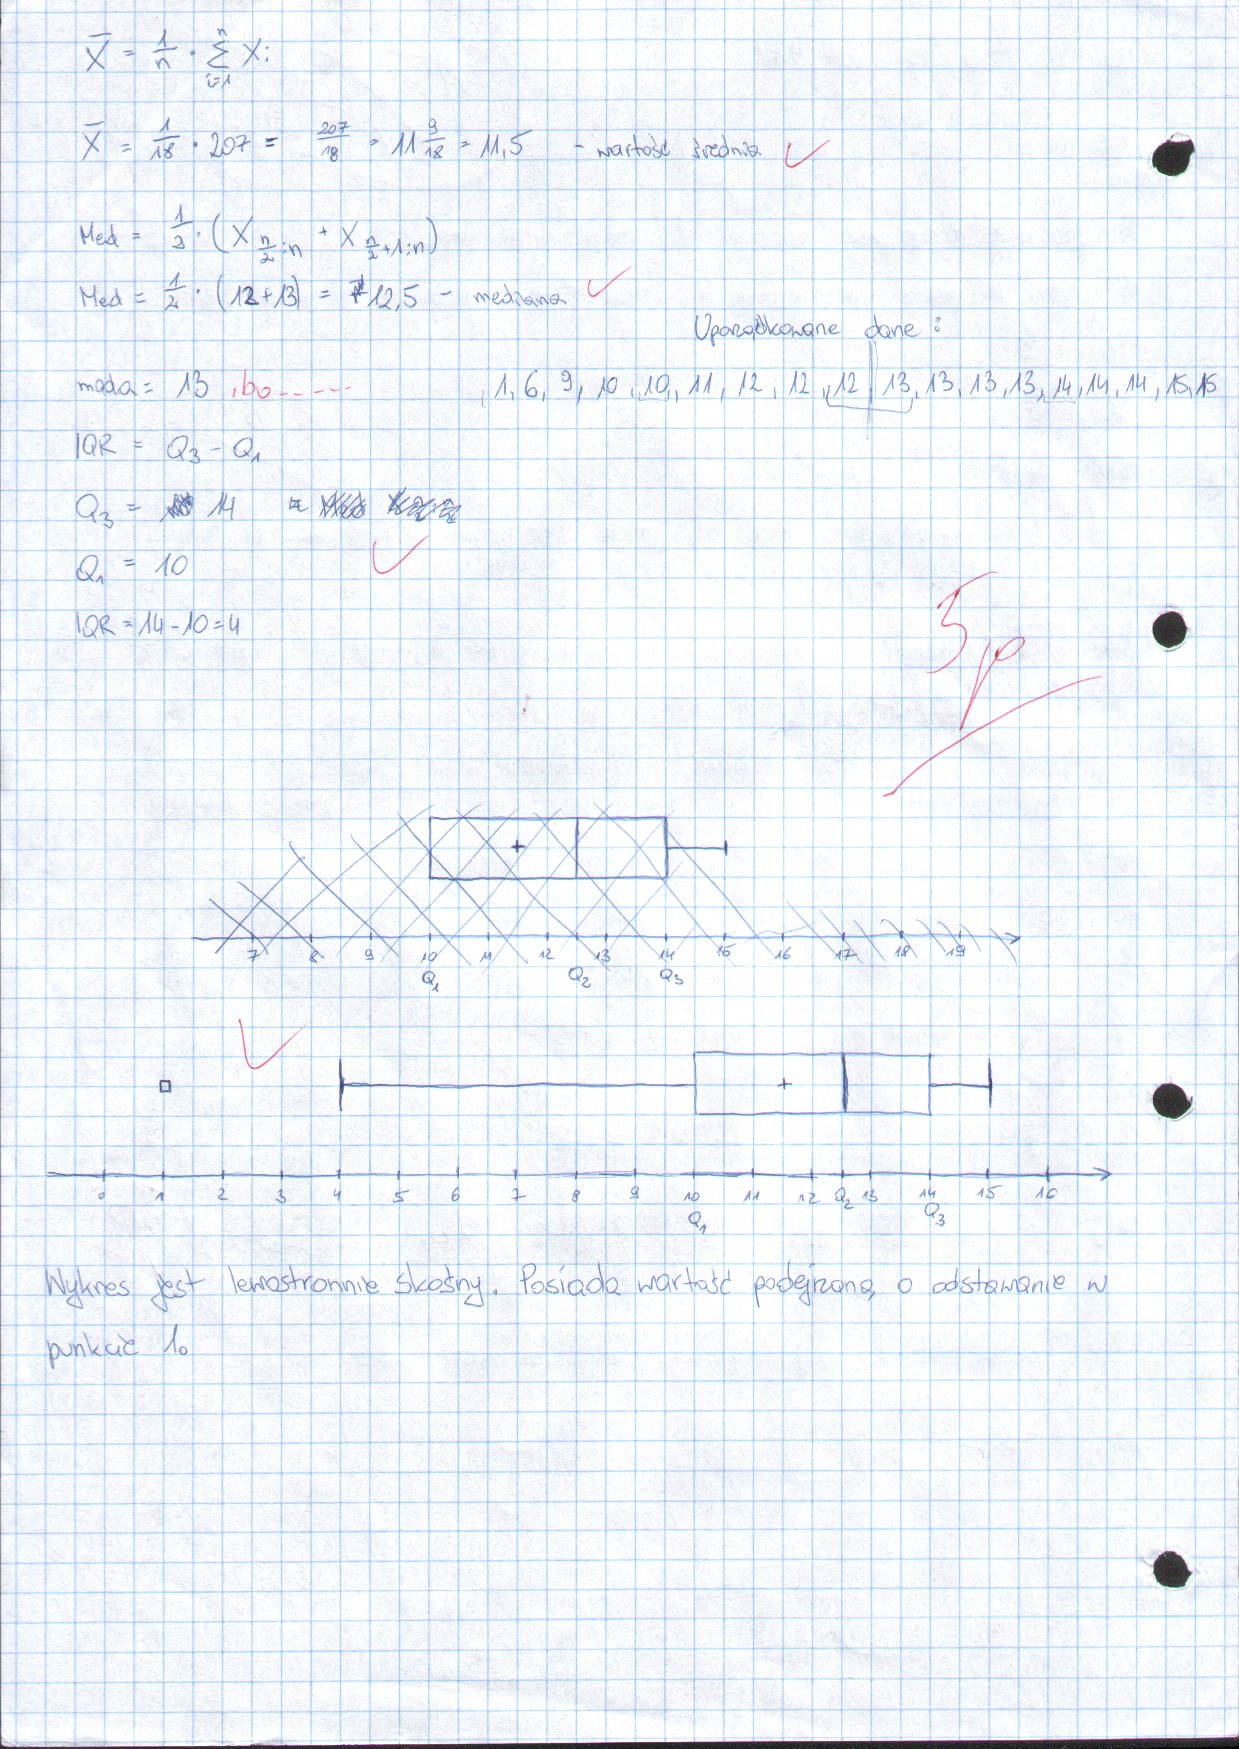 X̄ = 1/n · Σ_{i=1}^{n} X_i
X̄ = 1/18 · 207 = 207/18 = 11 9/18 = 11,5 - wartość średnia
Med = 1/2 · (X_{n/2:n} + X_{n/2+1:n})
Med = 1/2 · (12+13) = 12,5 - mediana
Uporządkowane dane:
moda = 13 , bo -----
1, 6, 9, 10, 10, 11, 12, 12, 12, 13, 13, 13, 13, 14, 14, 14, 15, 15
IQR = Q3 - Q1
Q3 = 14
Q1 = 10
IQR = 14 - 10 = 4
5p
7 8 9 10 11 12 13 14 15 16 17 18 19
Q1 Q2 Q3
0 1 2 3 4 5 6 7 8 9 10 11 12 Q2 13 14 15 16
Q1 Q3
Wykres jest lewostronnie skośny. Posiada wartość podejrzaną o odstawanie w
punkcie 1.